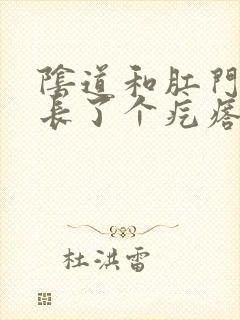 陰道和肛門
長了个疙瘩
杜洪雷